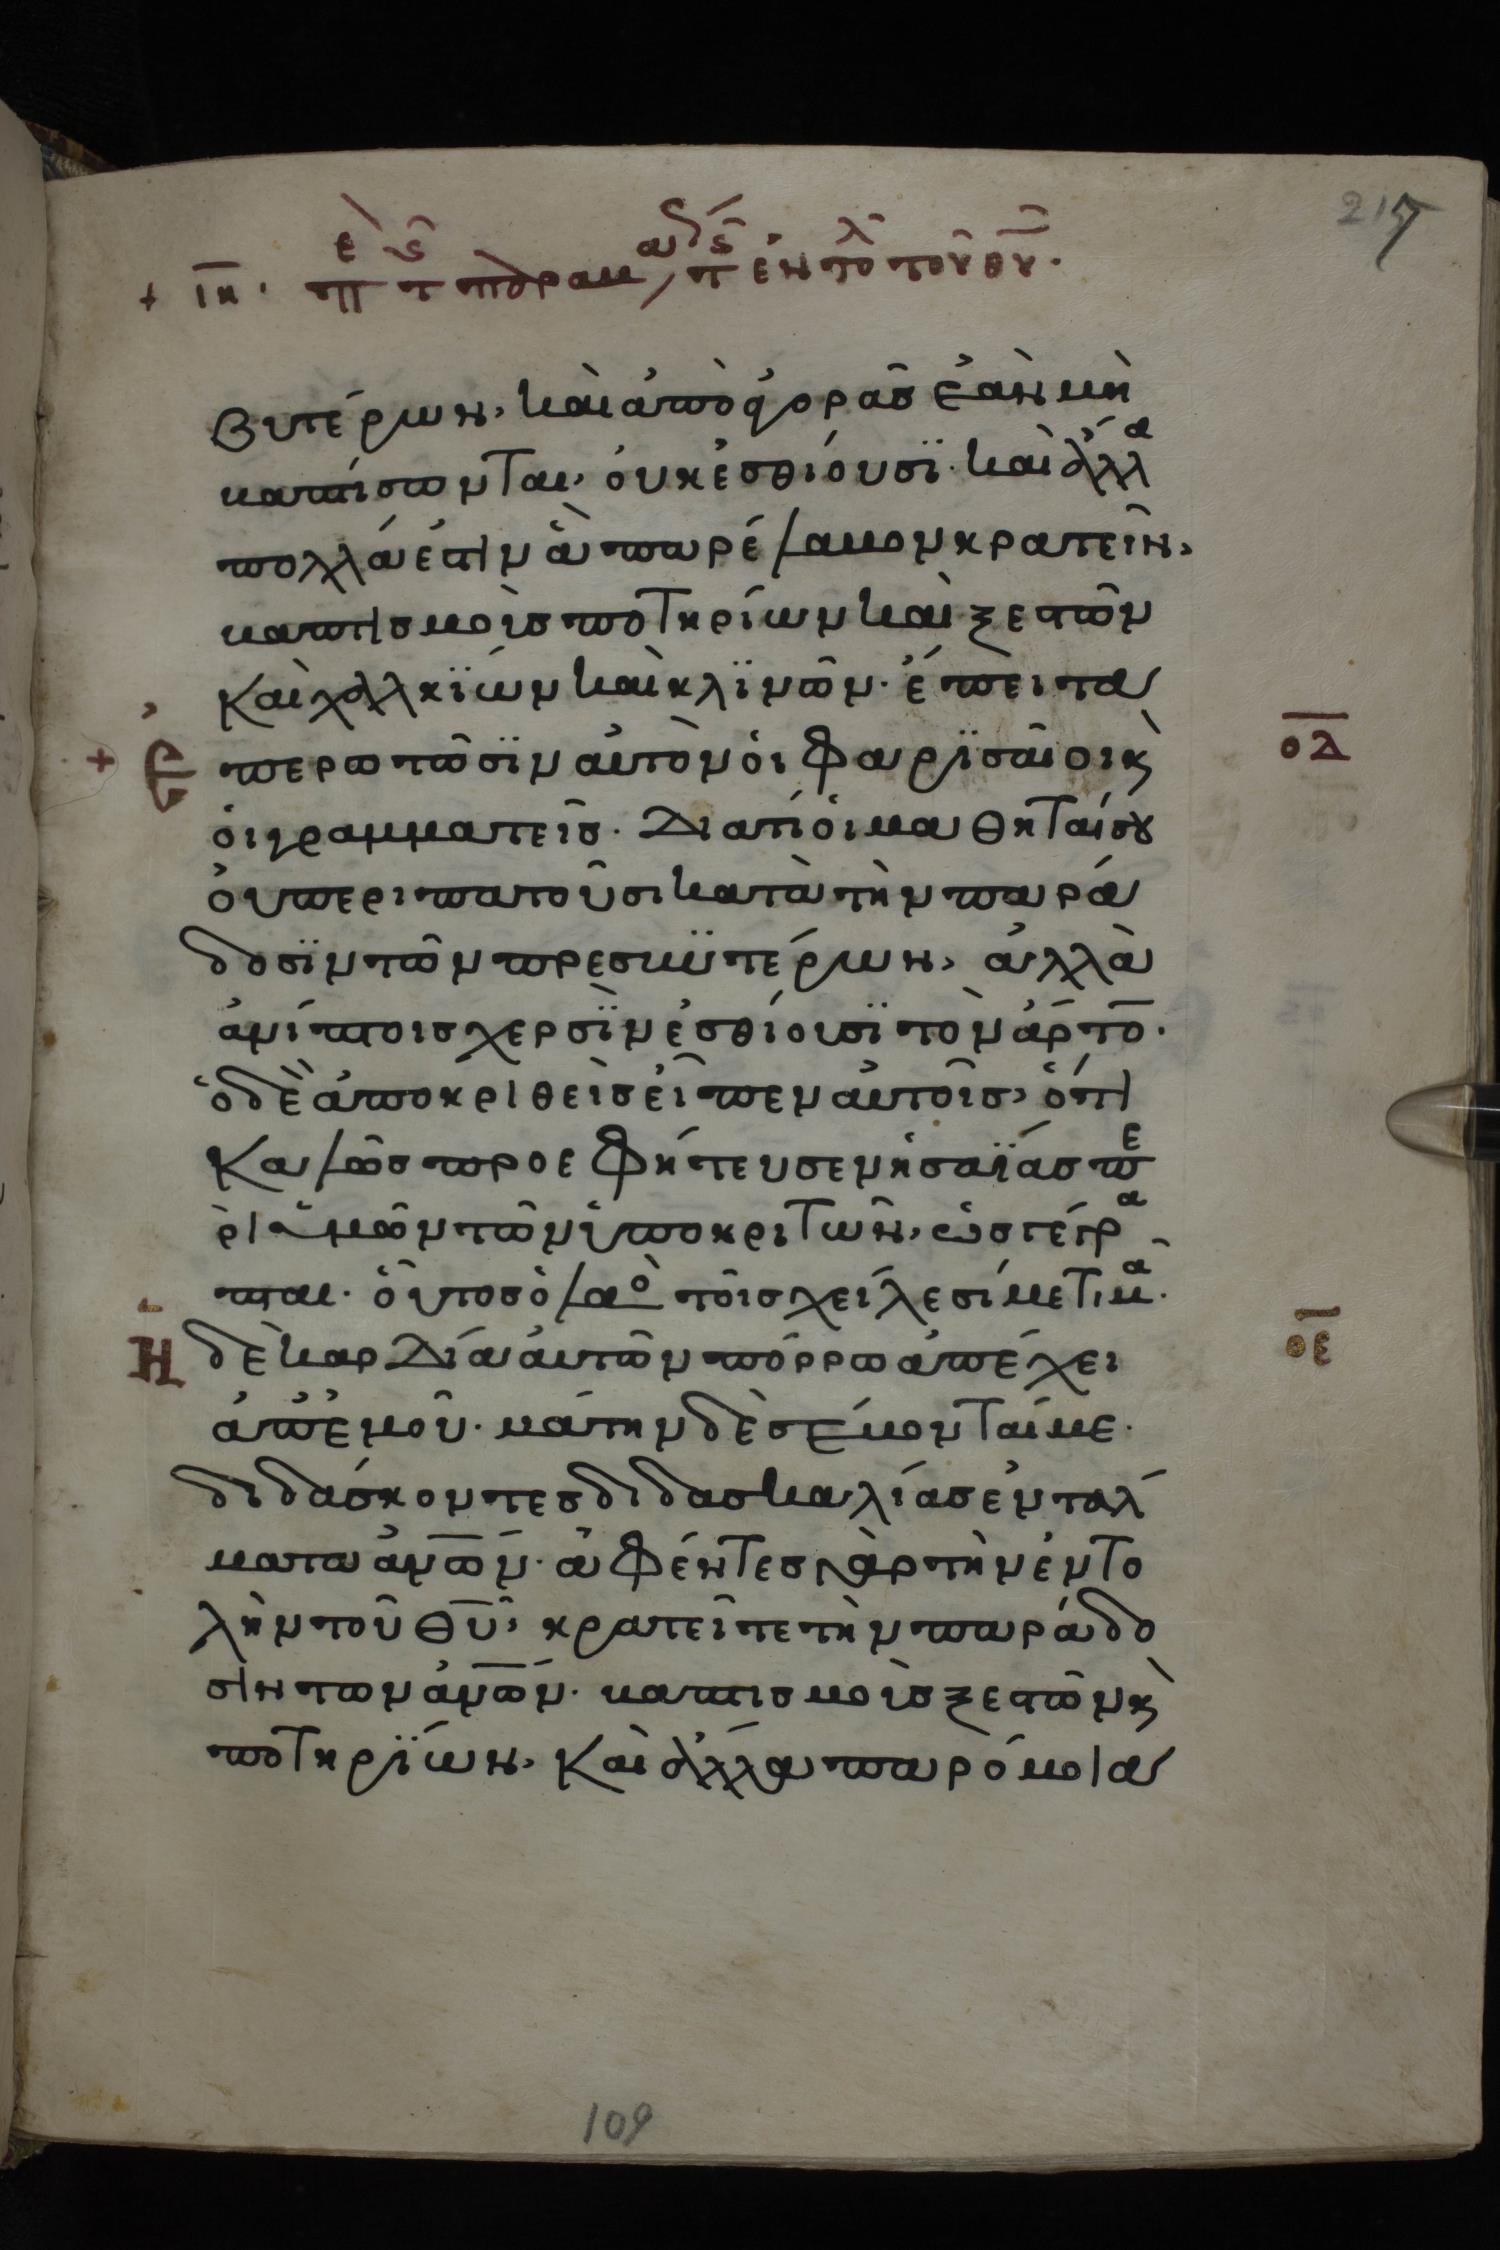 217
+ ιη. περὶ τῆς παραβάσεως τῆς ἐντολῆς τοῦ θυ.
βυτέρων, καὶ ἀπὸ ἀγορᾶσ ἐὰν μὴ
βαπτίσωνται, οὐκ ἐσθίουσϊ. καὶ ἄλλα
πολλά ἐστιν ἃ παρέλαβον κρατεῖν,
βαπτισμοὺσ ποτηρίων καὶ ξεστῶν
καὶ χαλκΐων καὶ κλϊνῶν. ἔπειτα
οδ
+ Ἐπερωτῶσϊν αὐτὸν ὁι φαρϊσαῖοι κ
ὁι γραμματεῖσ. Διατί ὁι μαθηταί σου
ὀυ περιπατοῦσι κατὰ τὴν παρά
δοσϊν τῶν πρεσβϋτέρων, ἀλλὰ
ἀνίπτοισ χερσϊν ἐσθίουσϊ τὸν ἄρτο.
ὁ δὲ ἀποκριθεὶσ εἶπεν αὐτοῖσ, ὅτι
καλῶσ προεφήτευσεν ἡσαΐασ πε
ρὶ ὑμῶν τῶν ὑποκριτῶν, ὡσ γέγρα
πται. οὗτοσ ὁ λαὸ τοῖσ χείλεσί με τιμᾶ.
οε
Ἡ δὲ καρδία αὐτῶν πόρρω ἀπέχει
ἀπ' ἐμοῦ. μάτην δὲ σέβονταί με.
διδάσκοντεσ διδασκαλίασ ἐντάλ
ματα ἀνων. ἀφέντεσ γὰρ τὴν ἐντο
λὴν τοῦ θυ, κρατεῖτε τὴν παράδο
σιν των ἀνων. βαπτισμοὺσ ξεστῶν κ
ποτηρΐων, καὶ ἄλλα παρόμοια
109